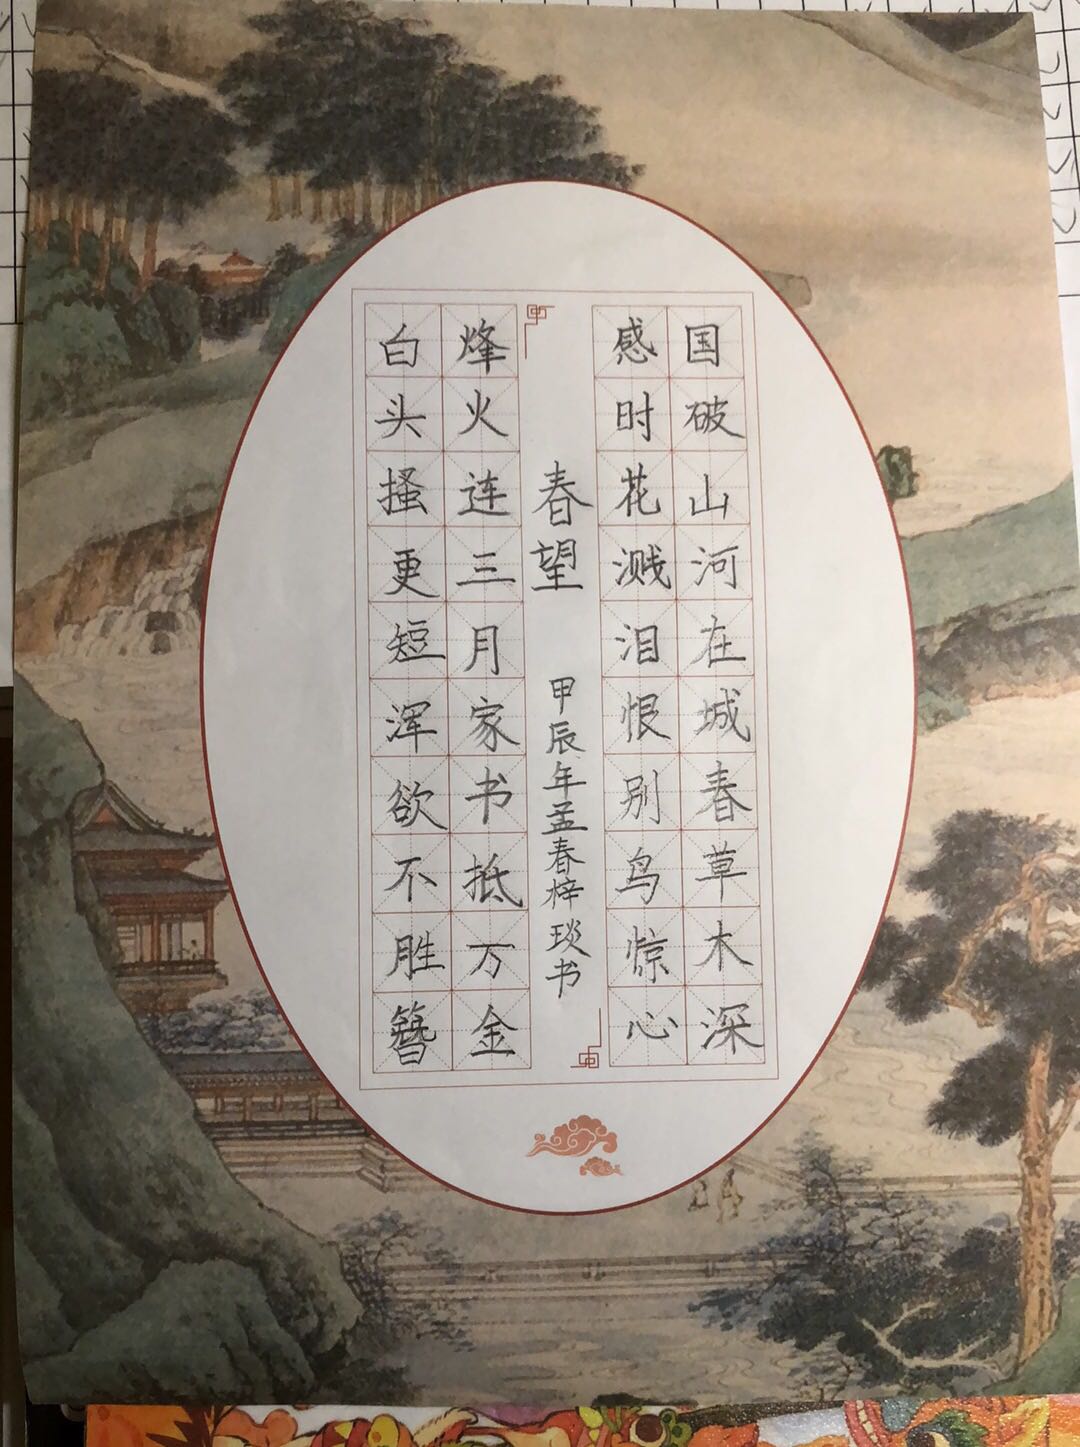 国破山河在城春草木深
感时花溅泪恨别鸟惊心
春望
甲辰年孟春梓琰书
烽火连三月家书抵万金
白头搔更短浑欲不胜簪